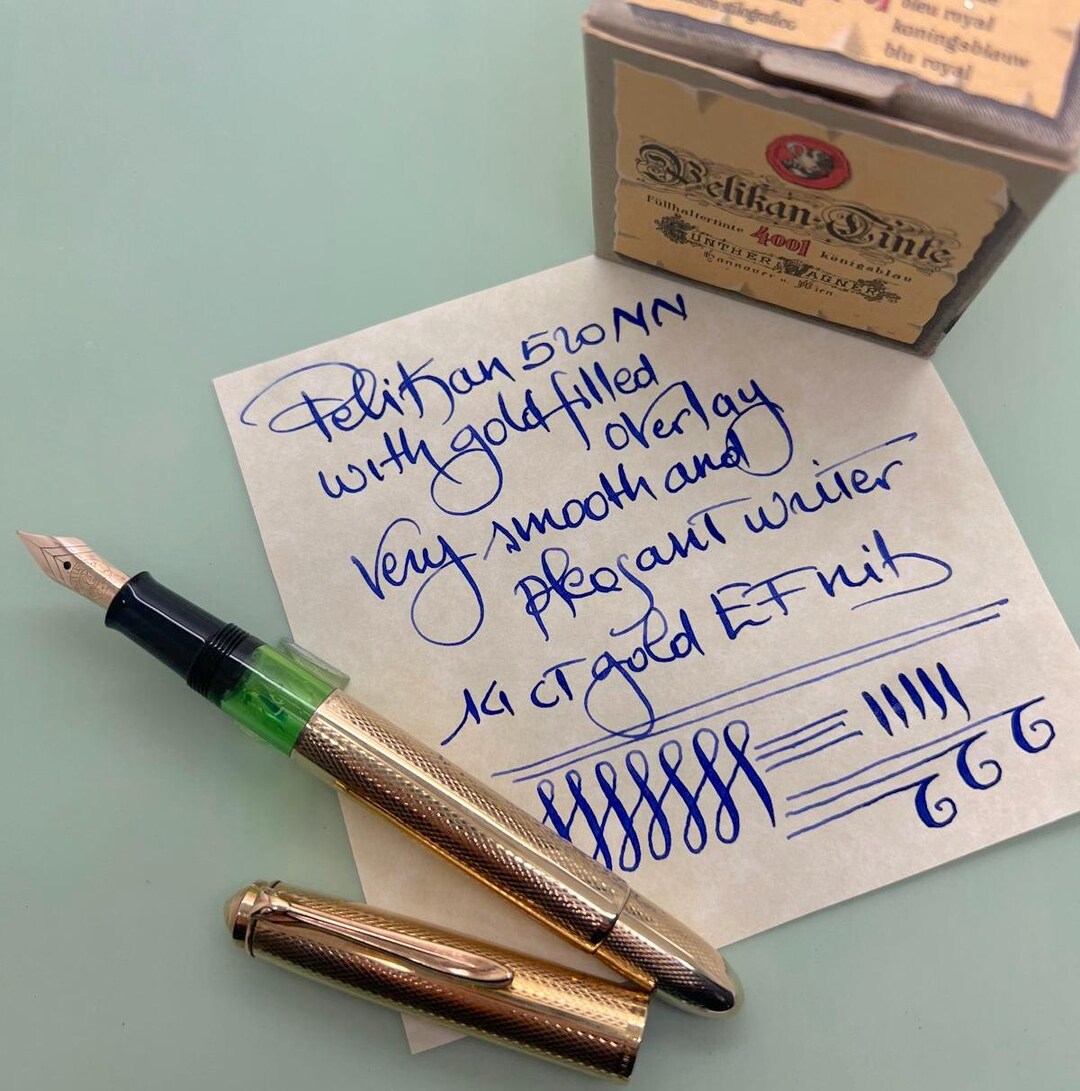 bleu royal
koningsblauw
blu royal
Pelikan-Tinte
Füllhaltertinte 4001 königsblau
GÜNTHER WAGNER
Hannover u. Wien
Pelikan 520 NN
with gold filled
overlay
very smooth and
pleasant writer
14 CT gold EF nib